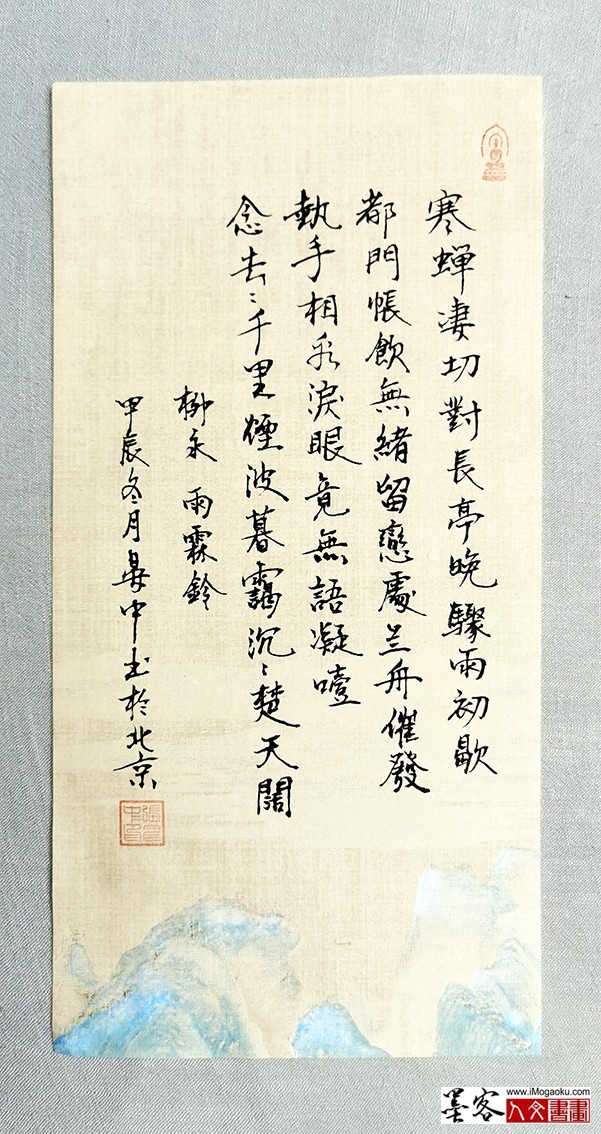 寒蝉凄切對長亭晚驟雨初歇
都門帳飲無緒留戀處兰舟催發
執手相看淚眼竟無語凝噎
念去〻千里煙波暮靄沉〻楚天闊
柳永 雨霖鈴
甲辰冬月 中書於北京
墨客
www.iMogaoku.com
人文書畫